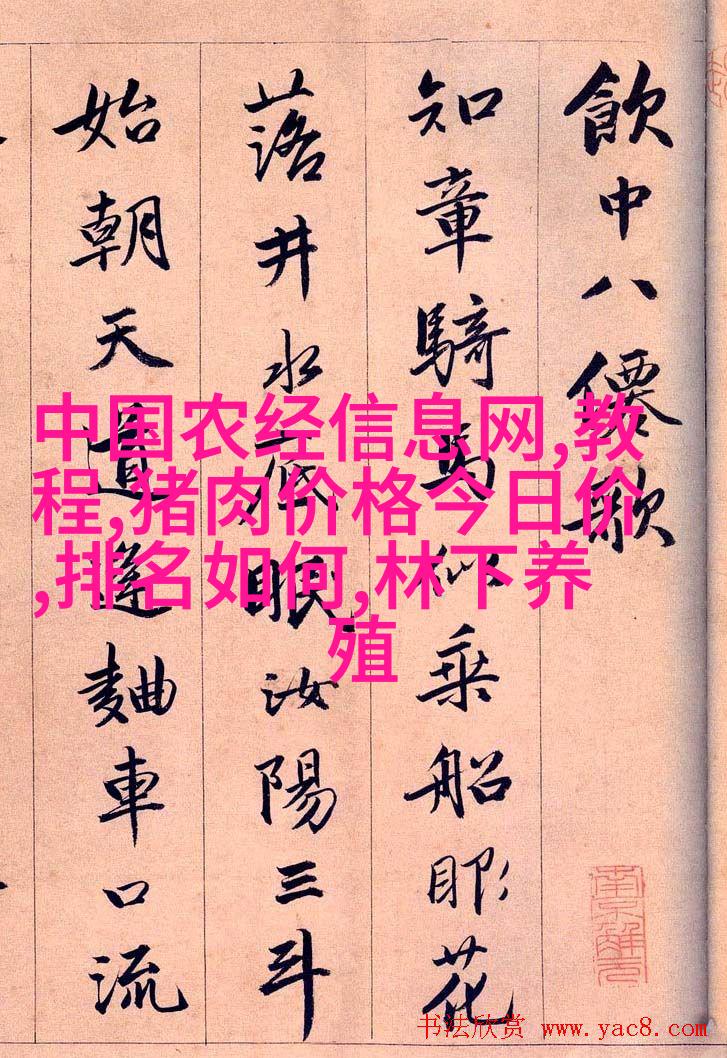 飲中八僊歌
知章騎馬似乗船眼花
落井水底眠汝陽三斗
始朝天道逢麯車口流
中国农经信息网,教
程,猪肉价格今日价
,排名如何,林下养
殖
南京解元
书法欣赏 www.yac8.com